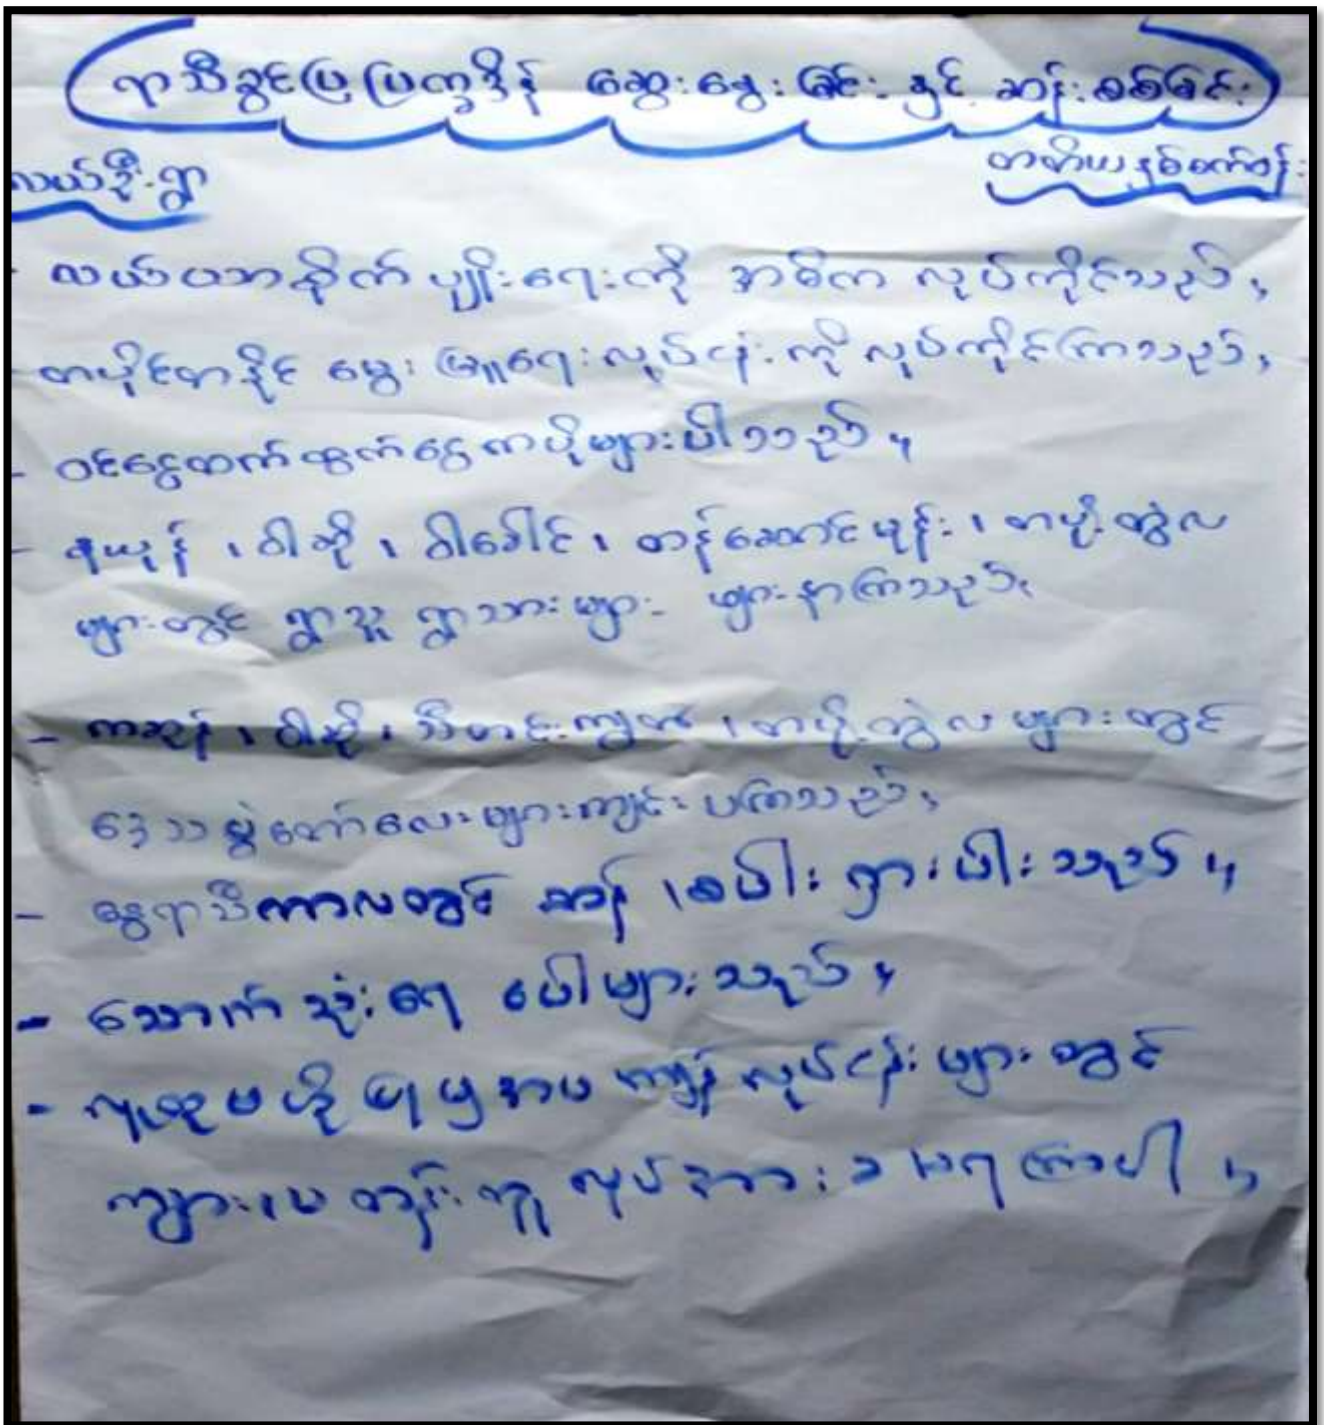 ရာသီခွင်ပြ ပြက္ခဒိန် ဆွေးနွေးခြင်း နှင့် ဆန်းစစ်ခြင်း
လယ်ဦးရွာ တတိယနှစ်စက်ဝန်း
- လယ်ယာစိုက်ပျိုးရေးကို အဓိက လုပ်ကိုင်သည်။
တပိုင်တနိုင် မွေးမြူရေးလုပ်ငန်းကို လုပ်ကိုင်ကြသည်။
- ဝင်ငွေထက်ထွက်ငွေကပိုများပါသည်။
- နယုန်၊ ဝါဆို၊ ဝါခေါင်၊ တန်ဆောင်မုန်း၊ တပို့တွဲလ
များတွင် ရွာသူ ရွာသားများ ဖျားနာကြသည်။
- ကဆုန်၊ ဝါဆို၊ သီတင်းကျွတ်၊ တပို့တွဲလများတွင်
ဒေသပွဲတော်လေးများကျင်းပကြသည်။
- နွေရာသီကာလတွင် ဆန်၊ စပါး ရှားပါးသည်။
- သောက်သုံးရေ ပေါများသည်။
- လူထုဗဟိုပြု လုပ်ငန်းများတွင်
ကျား၊မ တန်းတူ လုပ်အားခ ရကြပါ။